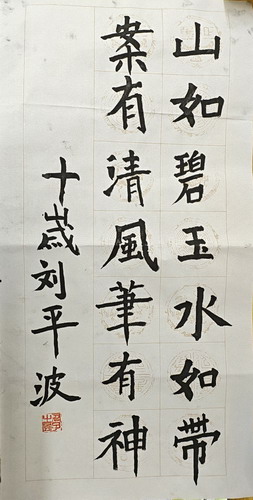 山如碧玉水如帶
案有清風筆有神
十歲刘平波